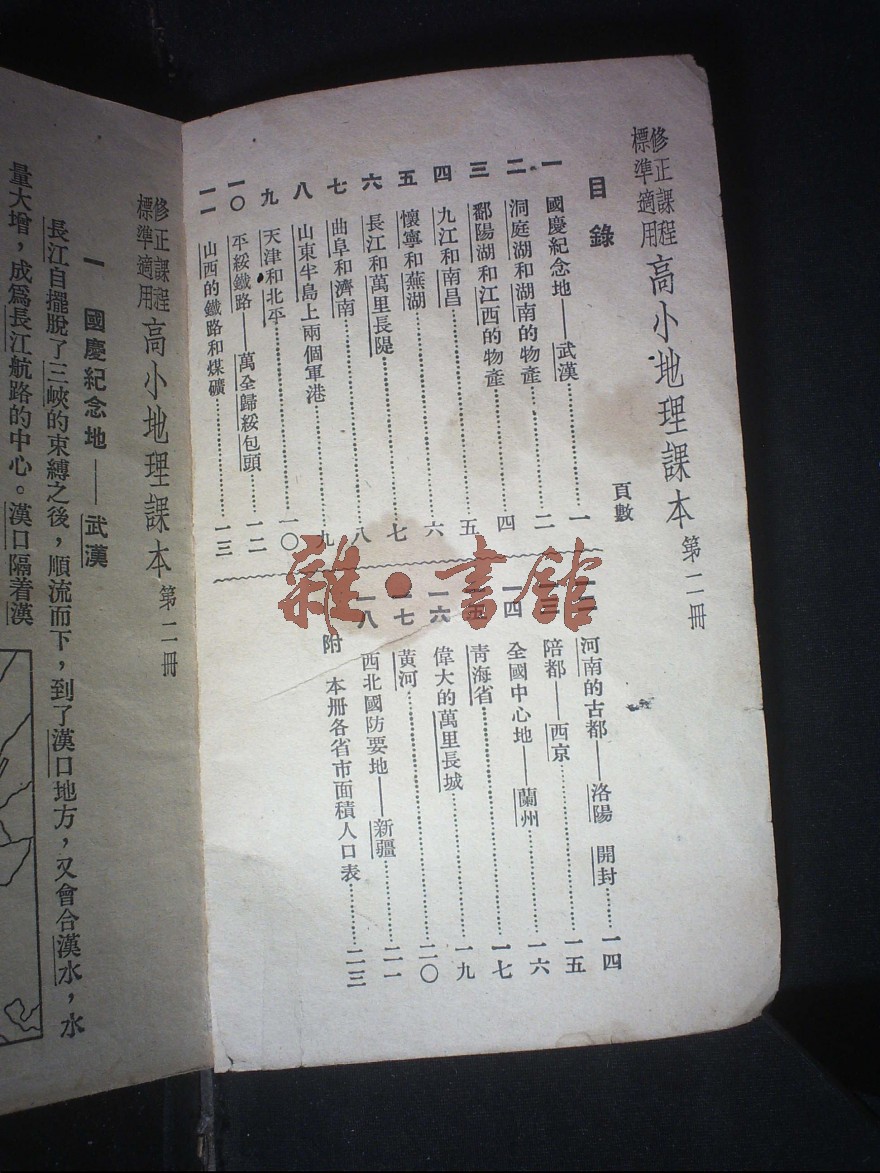 修正課程標準適用 高小地理課本 第二冊
目錄
頁數
一 國慶紀念地——武漢 一
二 洞庭湖和湖南的物產 二
三 鄱陽湖和江西的物產 四
四 九江和南昌 五
五 懷寧和蕪湖 六
六 長江和萬里長隄 七
七 曲阜和濟南 八
八 山東半島上兩個軍港 九
九 天津和北平 一〇
一〇 平綏鐵路——萬全歸綏包頭 一二
一一 山西的鐵路和煤礦 一三
一二 河南的古都——洛陽 開封 一四
一三 陪都——西京 一五
一四 全國中心地——蘭州 一六
一五 青海省 一七
一六 偉大的萬里長城 一九
一七 黃河 二〇
一八 西北國防要地——新疆 二一
附 本册各省市面積人口表 二三
雜·書館
修正課程標準適用 高小地理課本 第二冊
一 國慶紀念地——武漢
長江自擺脫了三峽的束縛之後，順流而下，到了漢口地方，又會合漢水，水
量大增，成爲長江航路的中心。漢口隔着漢